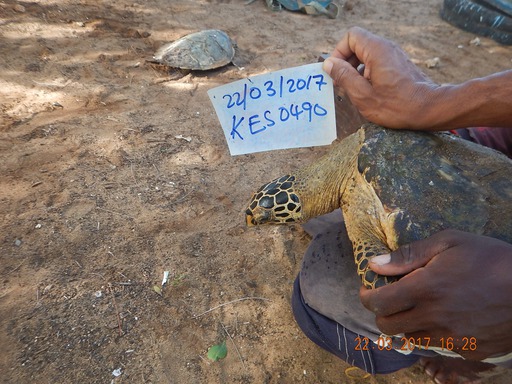 22/03/2017
KES0490
22 03 2017 16:28